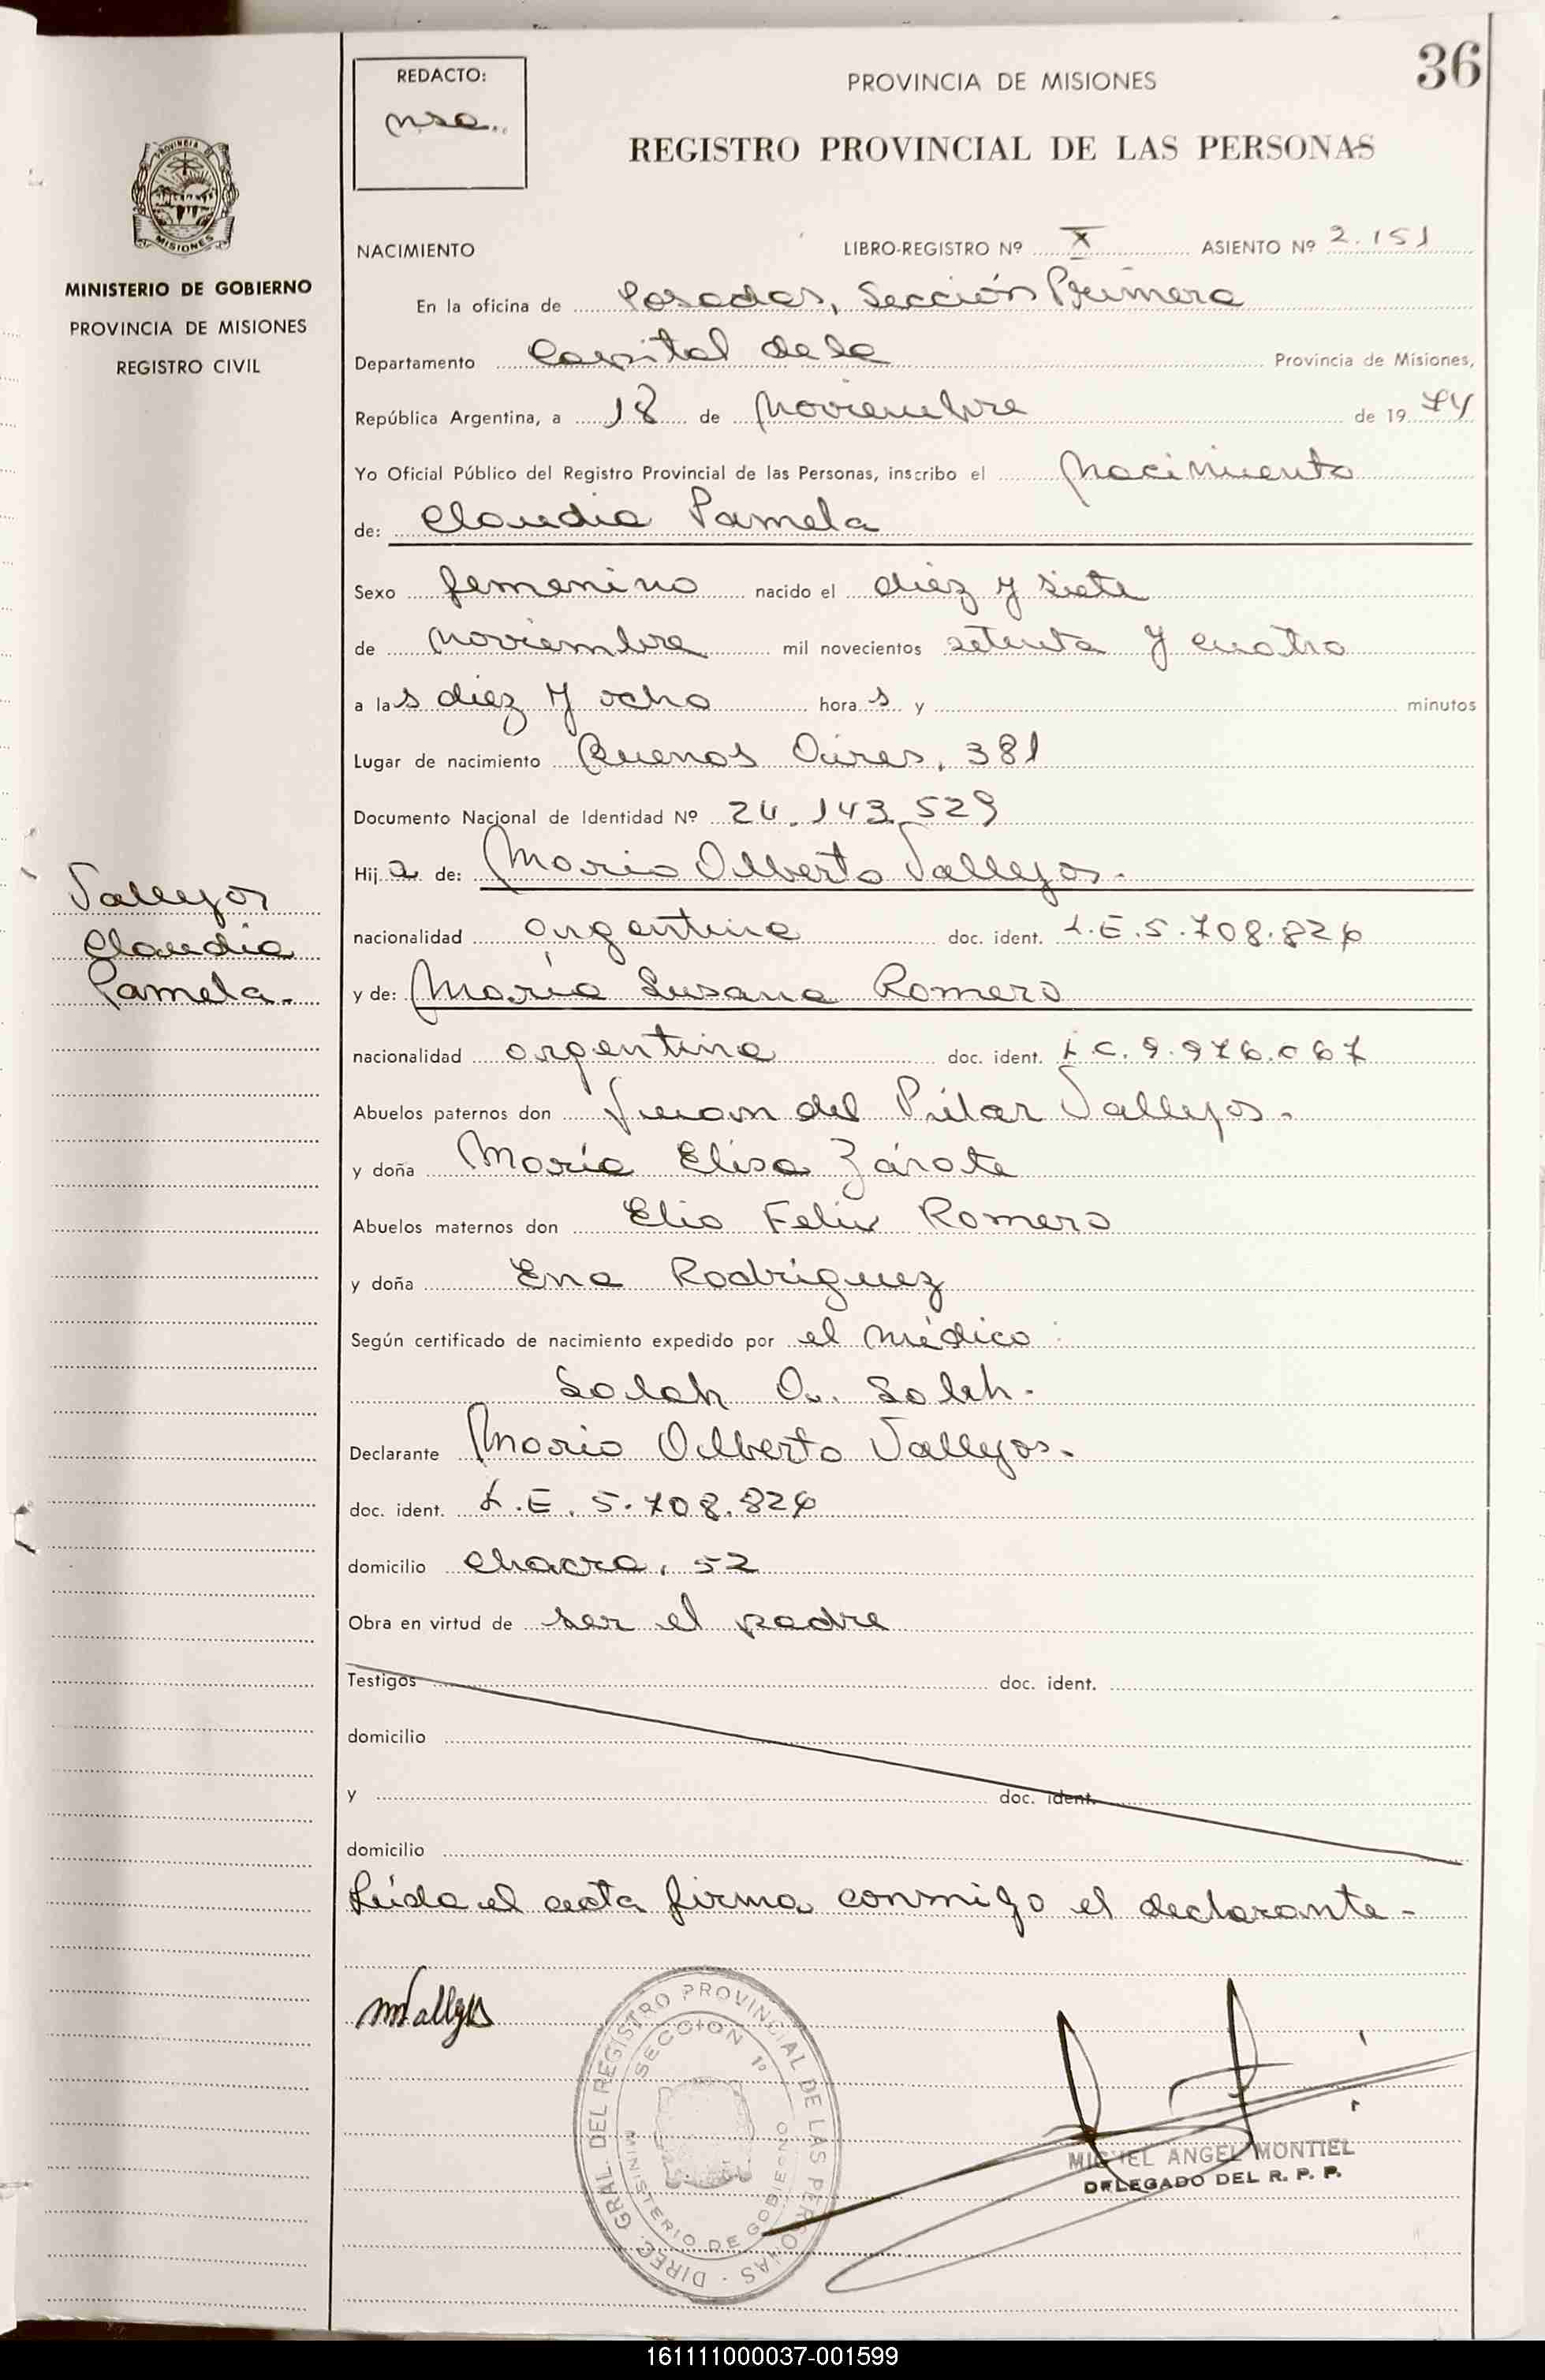 36
REDACTO:
PROVINCIA DE MISIONES
REGISTRO PROVINCIAL DE LAS PERSONAS
PROVINCIA DE
MISIONES
MINISTERIO DE GOBIERNO
PROVINCIA DE MISIONES
REGISTRO CIVIL
NACIMIENTO LIBRO-REGISTRO Nº X ASIENTO Nº 2.151
En la oficina de Posadas, Sección Primera
Departamento Capital de la Provincia de Misiones,
República Argentina, a 18 de Noviembre de 19 74
Yo Oficial Público del Registro Provincial de las Personas, inscribo el Nacimiento
de: Claudia Pamela
Sexo femenino nacido el diez y siete
de Noviembre mil novecientos setenta y cuatro
a las diez y ocho horas y minutos
Lugar de nacimiento Buenos Aires, 381
Documento Nacional de Identidad Nº 24.143.529
Hija de: Mario Alberto Vallejos.
Vallejos
Claudia
Pamela.
nacionalidad argentina doc. ident. L.E. 5.708.826
y de: María Susana Romero
nacionalidad argentina doc. ident. L.C. 9.976.067
Abuelos paternos don Juan del Pilar Vallejos.
y doña María Elisa Zárate
Abuelos maternos don Elio Felix Romero
y doña Ena Rodríguez
Según certificado de nacimiento expedido por el médico:
Saleh A. Saleh.
Declarante Mario Alberto Vallejos.
doc. ident. L.E. 5.708.826
domicilio chacra, 52
Obra en virtud de ser el padre
Testigos doc. ident.
domicilio
y doc. ident.
domicilio
Leída el acta firma conmigo el declarante.
MVallejos
DIREC. GRAL. DEL REGISTRO PROVINCIAL DE LAS PERSONAS
SECCION 1º
MINISTERIO DE GOBIERNO
MIGUEL ANGEL MONTIEL
DELEGADO DEL R. P. P.
161111000037-001599